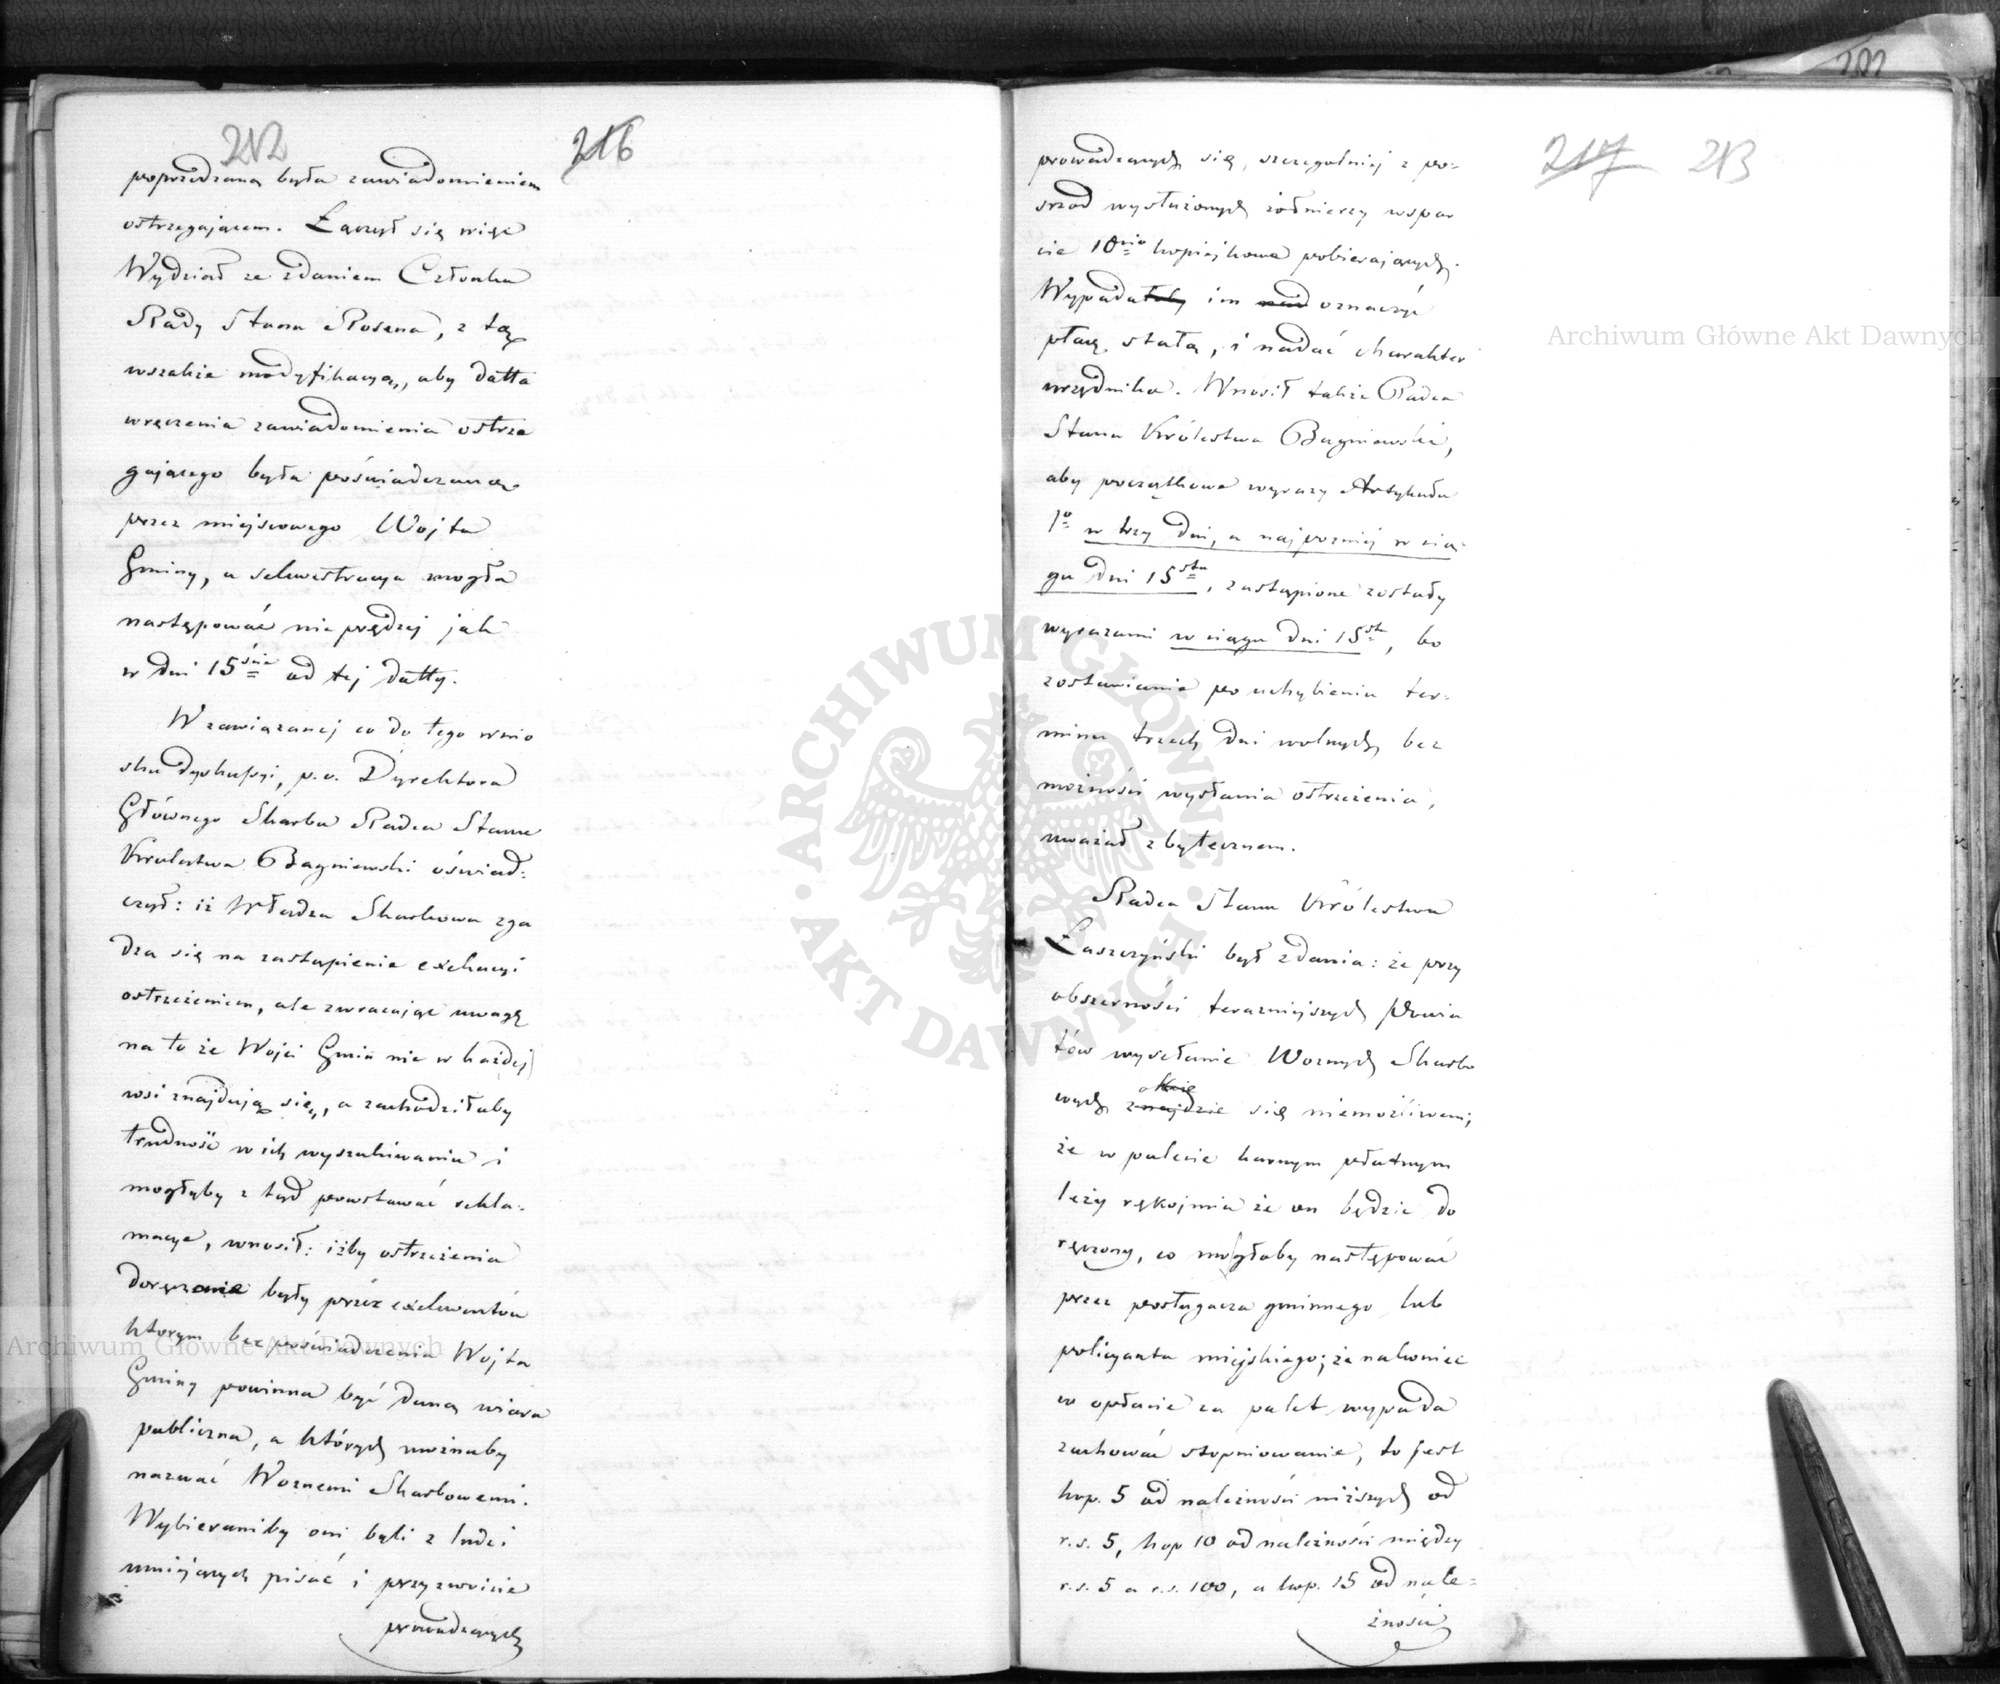 212
216
poprzedzaną była zawiadomieniem
ostrzegającem. Łączył się więc
Wydział ze zdaniem Członka
Rady Stanu Rosena, z tą
wszakże modyfikacyą, aby datta
wręczenia zawiadomienia ostrze
gającego była poświadczaną
przez miejscowego Wojta
Gminy, a sekwestracya mogła
następować nie prędzej jak
w dni 15ście od tej datty.
W zawiązanej co do tego wnio
sku dyskussyi, p.o. Dyrektora
Głównego Skarbu Radca Stanu
Królestwa Bagniewski oświad:
czył: iż Władza Skarbowa zga
dza się na zastąpienie exekucyi
ostrzeżeniem, ale zwracając uwagę
na to że Wójci Gmin nie w każdej
wsi znajdują się, a zachodziłaby
trudność w ich wyszukiwaniu i
mogłyby z tąd powstawać rekla:
macye, wnosił: iżby ostrzeżenia
doręczane były przez exekwentów
ktorym bez poświadczenia Wojta
Gminy powinna być daną wiara
publiczna, a których możnaby
nazwać Woznemi Skarbowemi.
Wybieraniby oni byli z ludzi
umiejących pisać i przyzwoicie
prowadzących
202
217 213
prowadzących się, szczególniej z po:
srzod wysłużonych żołnierzy wspar
cie 10cio kopiejkowe pobierających.
Wypadałoby im nad oznaczyć
płacę stałą, i nadać charakter
urzędnika. Wnosił także Radca
Stanu Królestwa Bagniewski,
aby początkowe wyrazy Artykułu
1o w trzy dni, a najpozniej w cią:
gu dni 15stu, zastąpione zostały
wyrazami w ciągu dni 15stu, bo
zostawianie po uchybieniu ter:
minu trzech dni wolnych, bez
możności wysłania ostrzeżenia,
uważał zbytecznem.
Radca Stanu Królestwa
Łaszczyński był zdania: że przy
obszerności terazniejszych Powia
tów wysełanie Woznych Skarbo
okaże
wych znajdzie się niemożliwem;
że w palecie karnym płatnym
leży rękojmia że on będzie do
ręczony, co mogłoby następować
przez posługacza gminnego lub
policyanta miejskiego; że nakoniec
w opłacie za palet wypada
zachować stopniowanie, to jest
kop. 5 od należności niższych od
r.s. 5, kop 10 od należności między
r.s. 5 a r.s. 100, a kop. 15 od nale=
żności
Archiwum Główne Akt Dawnych
Archiwum Główne Akt Dawnych
ARCHIWUM GŁÓWNE · AKT DAWNYCH ·